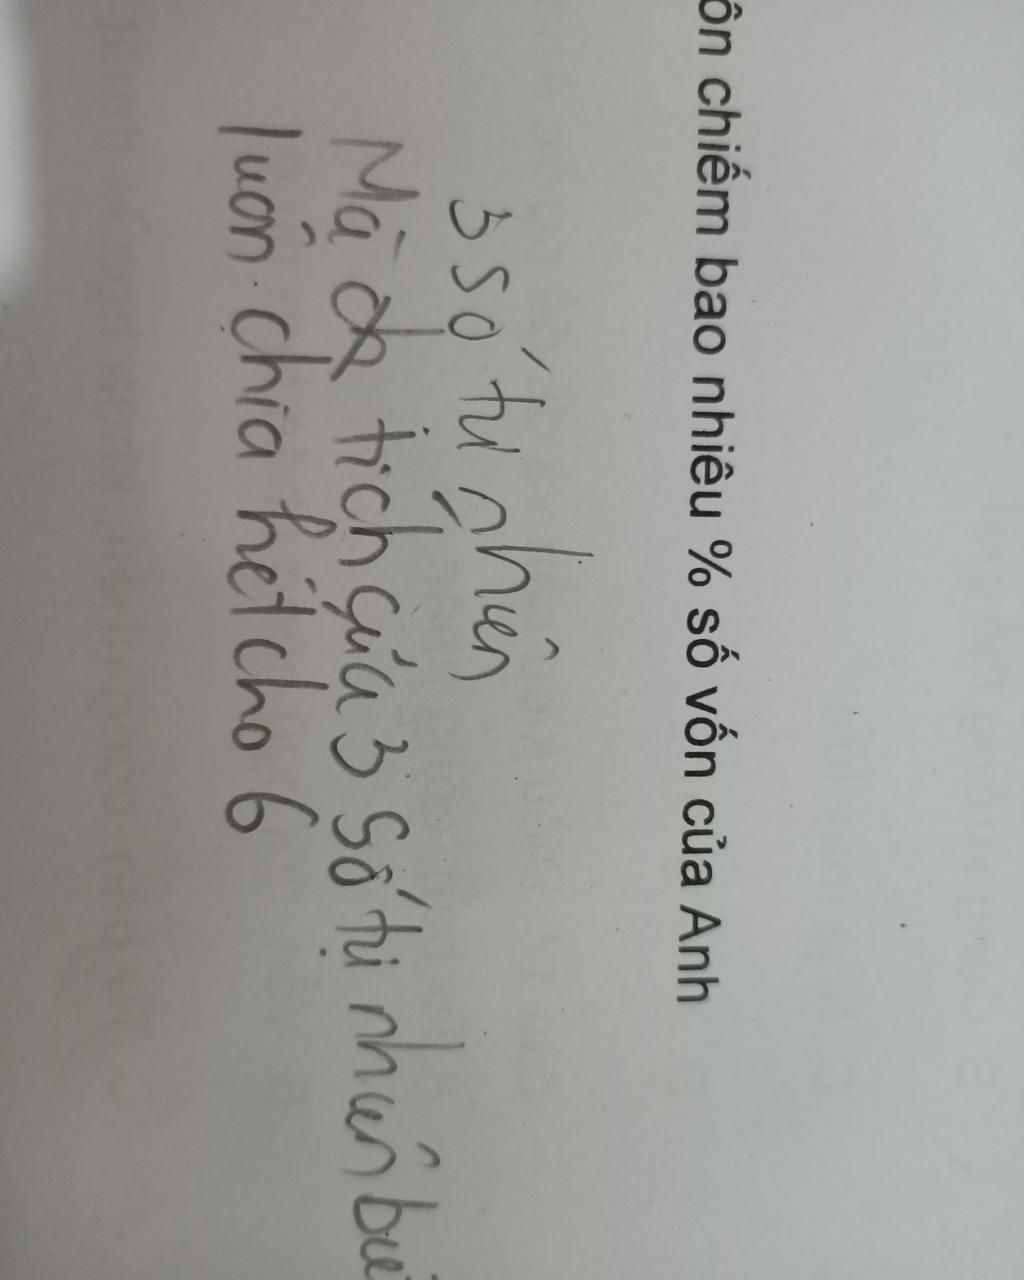 ôn chiếm bao nhiêu % số vốn của Anh
3 số tự nhiên
Mà tích của 3 số tự nhiên
luôn chia hết cho 6